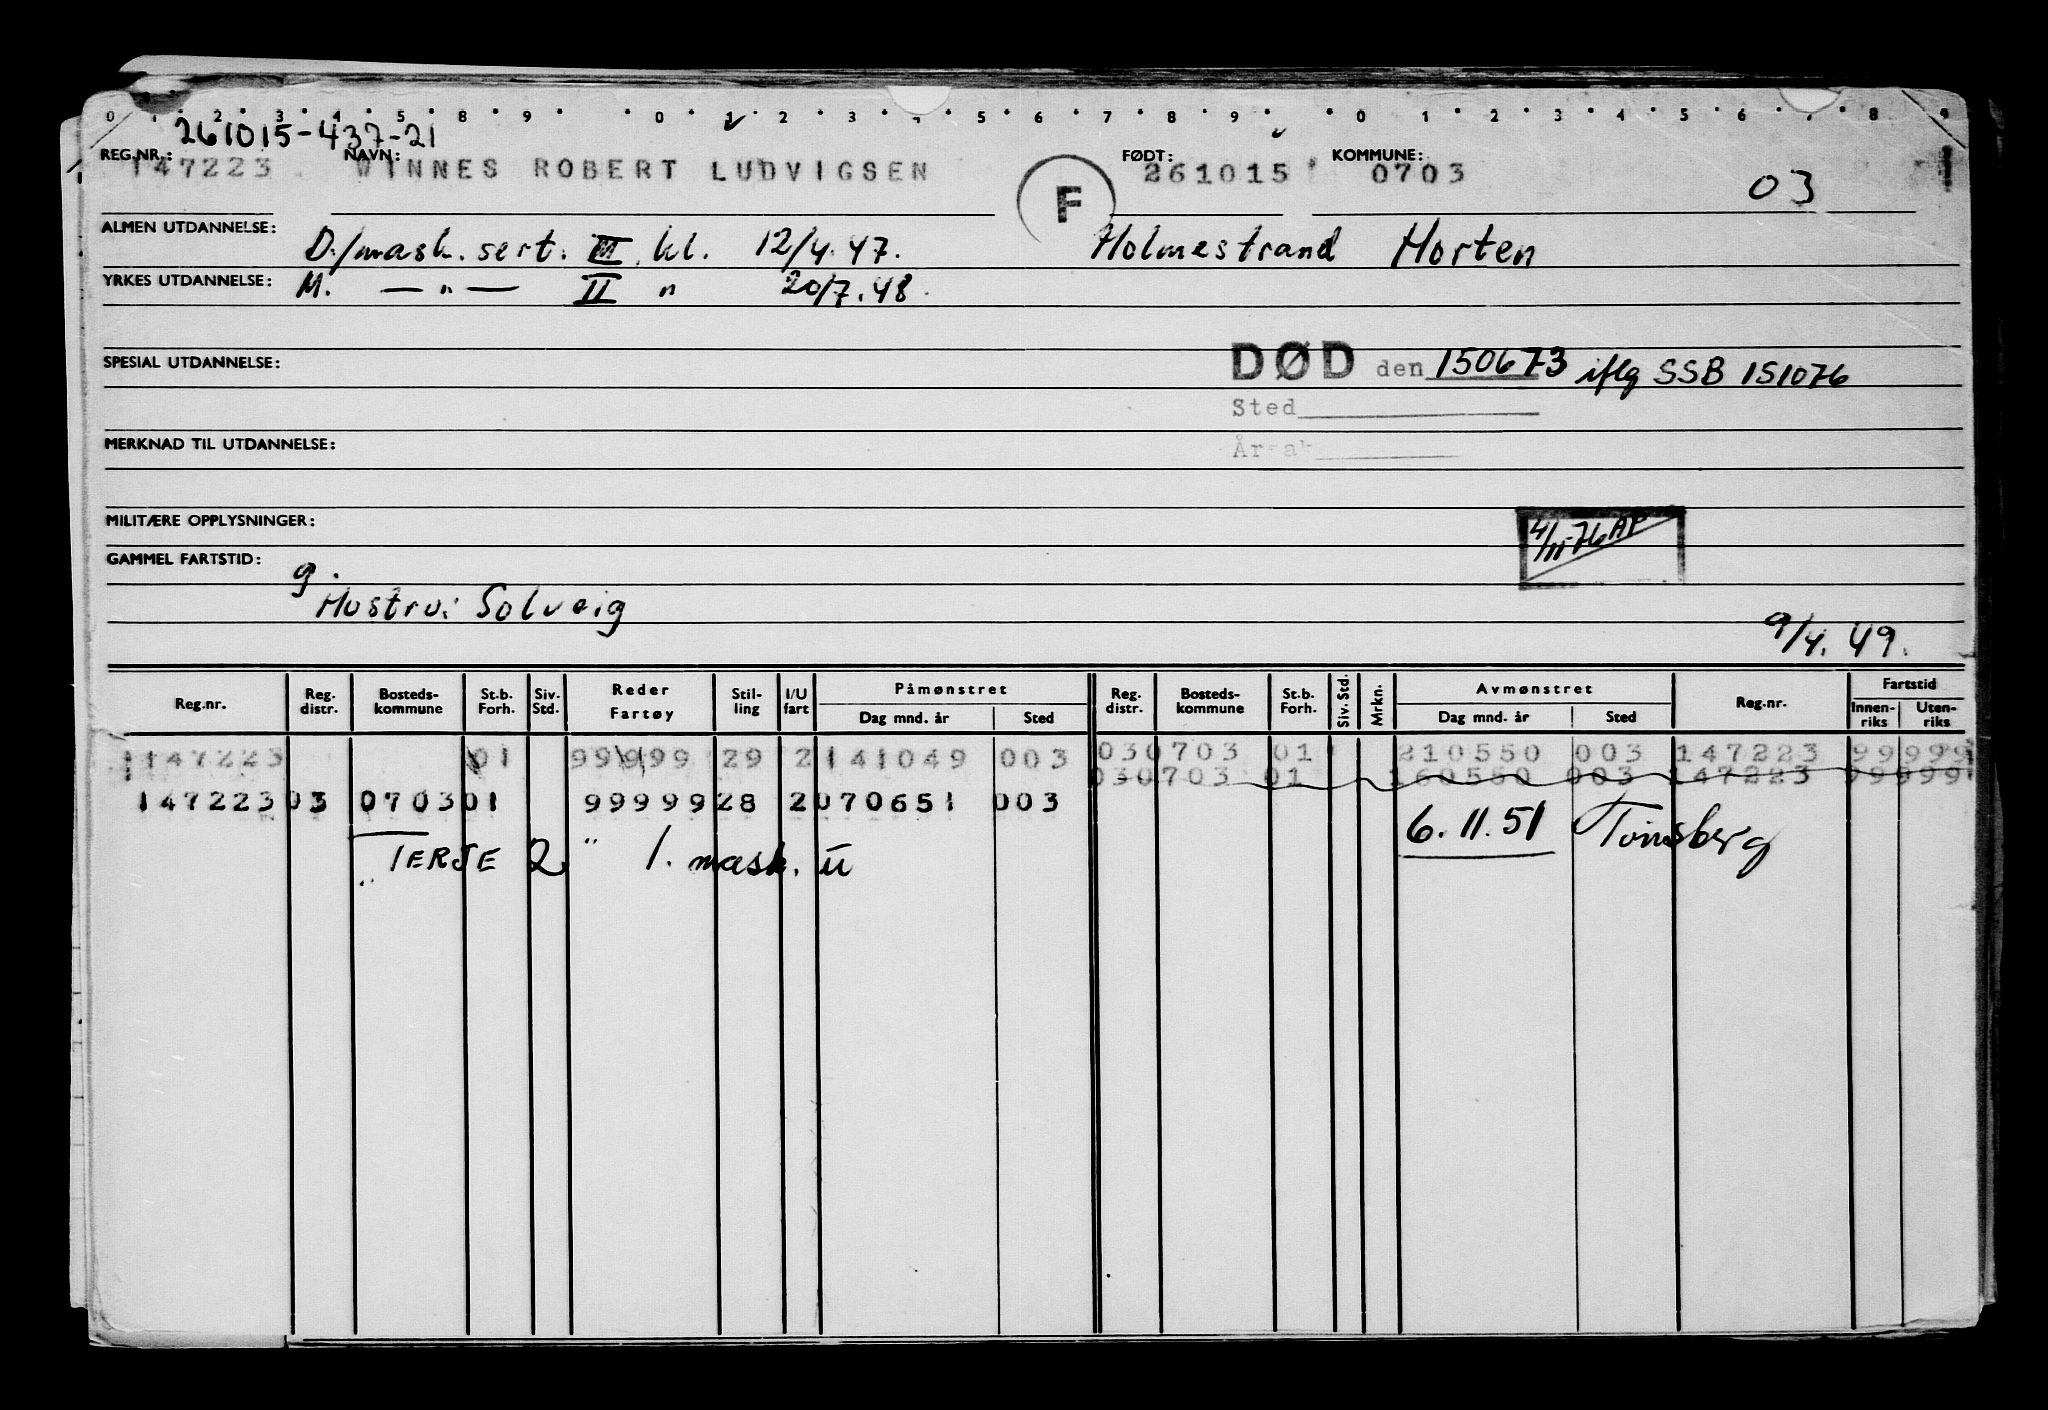 0 1 2 3 4 5 8 9 0 1 2 3 4 5 6 7 8 9 0 1 2 3 4 5 6 7 8 9
261015-437-21
REG.NR.: 147223 NAVN: VINNES ROBERT LUDVIGSEN F FØDT: 261015 KOMMUNE: 0703 03
ALMEN UTDANNELSE: D./mask. sert. III kl. 12/4.47. Holmestrand Horten
YRKES UTDANNELSE: M. — " — II " 20/7.48.
SPESIAL UTDANNELSE: DØD den 150673 iflg SSB 151076
Sted
MERKNAD TIL UTDANNELSE: Årsak
MILITÆRE OPPLYSNINGER: 4/11-76 AP
GAMMEL FARTSTID:
g.
Hustru: Solveig
9/4.49.
Reg.nr. Reg. distr. Bosteds-kommune St.b. Forh. Siv. Std. Reder Fartøy Stil-ling I/U fart Påmønstret Dag mnd. år Sted Reg. distr. Bosteds-kommune St.b. Forh. Siv. Std. Mrkn. Avmønstret Dag mnd. år Sted Reg.nr. Fartstid Innen-riks Uten-riks
147223 01 99999 29 2 141049 003 03 0703 01 210550 003 147223 99 999
03 0703 01 160550 003 147223 99 999
147223 03 0703 01 99999 28 2 070651 003
6.11.51 Tønsberg
"TERJE 2" 1. mask. U